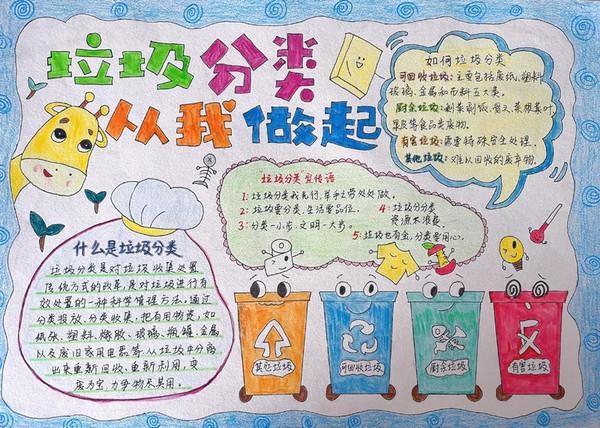 垃圾分类
从我做起
如何垃圾分类
可回收垃圾:主要包括废纸、塑料
玻璃、金属和布料五大类。
厨余垃圾:剩菜剩饭、骨头、菜根菜叶
果皮等食品类废物。
有害垃圾:需要特殊安全处理。
其他垃圾:难以回收的废弃物。
垃圾分类宣传语
1:垃圾分类我先行,举手之劳处处做。
2:垃圾要分类,生活要品位。
3:分类一小步,文明一大步。
4:垃圾分分类
资源不浪费。
5:垃圾也有金,分类要用心。
什么是垃圾分类
垃圾分类是对垃圾收集处置
传统方式的改革,是对垃圾进行有
效处置的一种科学管理方法,通过
分类投放、分类收集,把有用物资,如
纸张、塑料、橡胶、玻璃、瓶罐、金属
以及废旧家用电器等从垃圾中分离
出来重新回收、重新利用,变
废为宝,力争物尽其用。
其他垃圾
可回收垃圾
厨余垃圾
有害垃圾